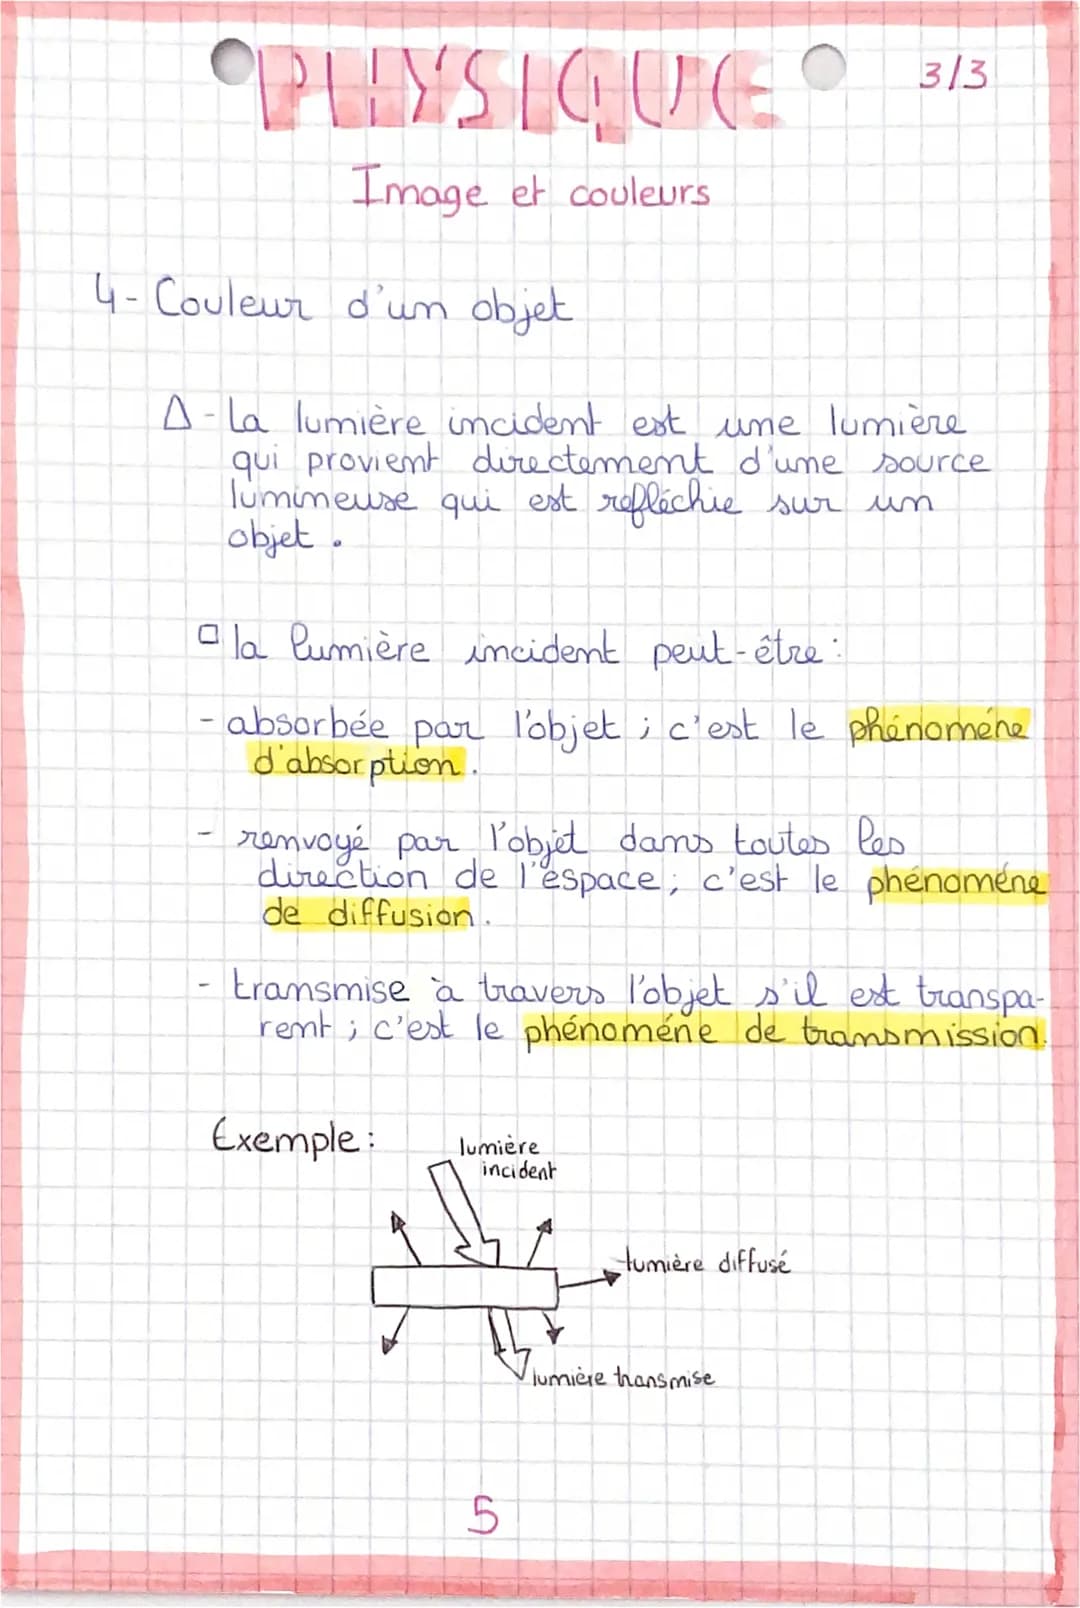 PHYSIQUE
3/3
Image et couleurs
4- Couleur d'un objet
Δ - La lumière incident est une lumière
qui provient directement d'une source
lumineuse qui est refléchie sur un
objet.
□ la lumière incident peut-être :
- absorbée par l'objet ; c'est le phénoméne
d'absorption.
- renvoyé par l'objet dans toutes les
direction de l'espace ; c'est le phénoméne
de diffusion.
- transmise à travers l'objet s'il est transpa-
rent ; c'est le phénoméne de transmission.
Exemple :
lumière
incident
lumière diffusé
lumière transmise
5